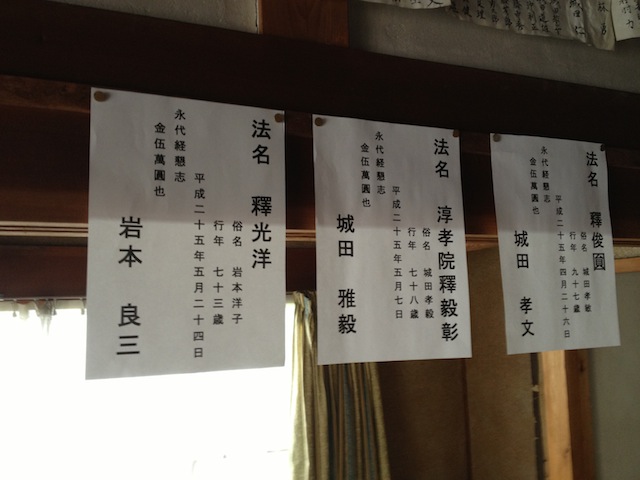 法名　釋俊圓
俗名　城田孝敏
行年　九十七歳
平成二十五年四月二十六日
永代経懇志
金伍萬圓也
城田　孝文
法名　淳孝院釋毅彰
俗名　城田孝毅
行年　七十八歳
平成二十五年五月七日
永代経懇志
金伍萬圓也
城田　雅毅
法名　釋光洋
俗名　岩本洋子
行年　七十三歳
平成二十五年五月二十四日
永代経懇志
金伍萬圓也
岩本　良三